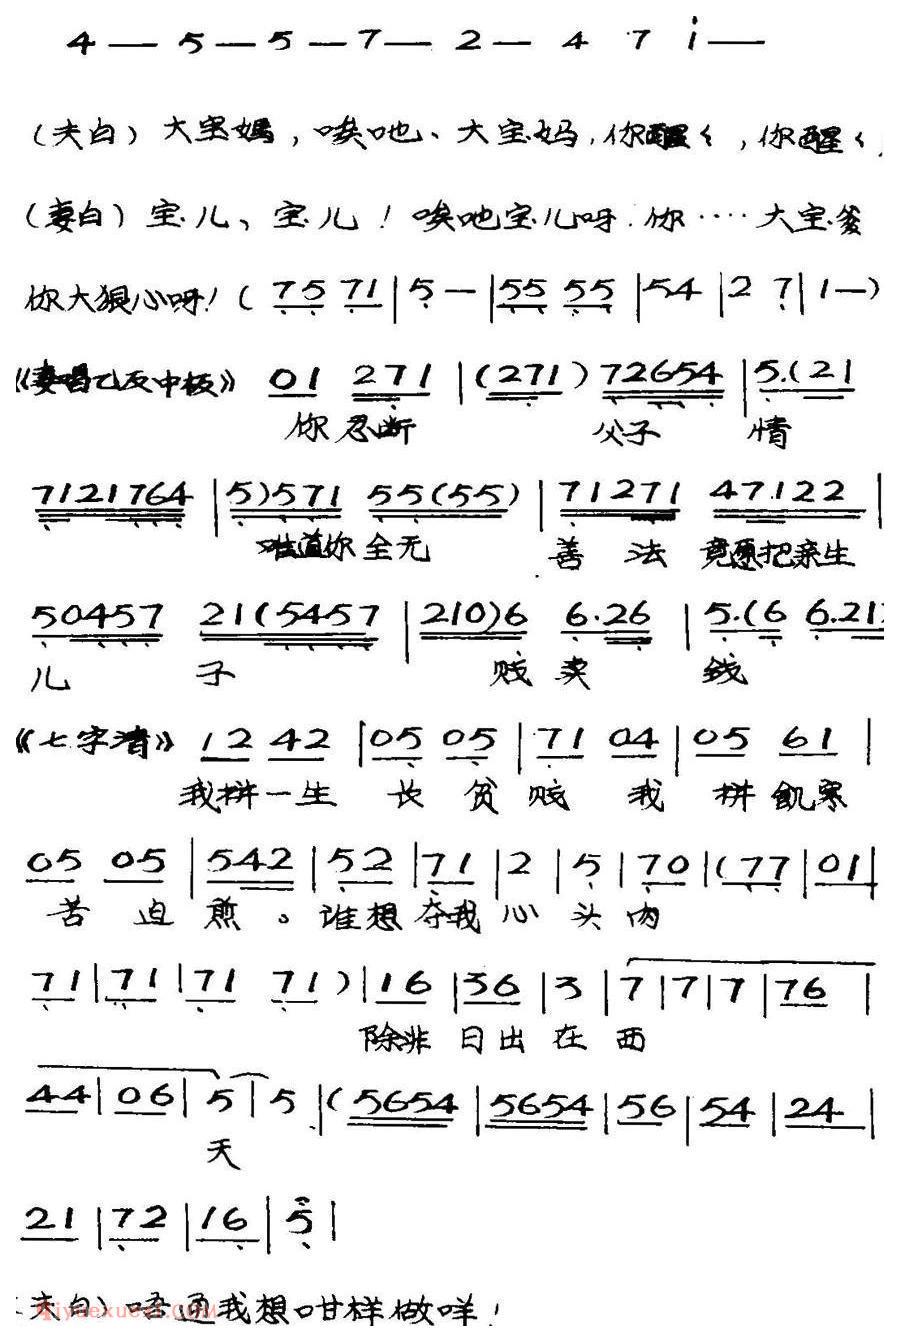 4 — 5 — 5 — 7 — 2 — 4 7 i —
(夫白) 大宝妈,唉吔、大宝妈,你醒々,你醒々,
(妻白) 宝儿、宝儿!唉吔宝儿呀.你····大宝爹
你大狠心呀!( 75 71 | 5 — | 55 55 | 54 | 2 7 | 1 — )
《妻唱乙反中板》 01 271 | (271) 72654 | 5.(21
你忍断 父子 情
7121764 | 5)571 55(55) | 71271 47.122 |
难道你全无 善 法 竟愿把亲生
50457 21(5457 | 210)6 6.26 | 5.(6 6.21)
儿 子 贱 卖 钱
《七字清》 12 42 | 05 05 | 71 04 | 05 61 |
我拼一生 长 贫 贱 我 拼 飢寒
05 05 | 542 | 52 | 71 | 2 | 5 | 70 | (77 | 01 |
苦 迫 煎 。谁想夺我心 头 肉
71 | 71 | 71 71 ) | 16 | 36 | 3 | 7 | 7 | 7 | 76 |
除非 日出 在 西
44 | 06 | 5 | 5 | ( 5654 | 5654 | 56 | 54 | 24 |
天
21 | 72 | 16 | 5 |
夫白) 唔通我想咁样做咩!